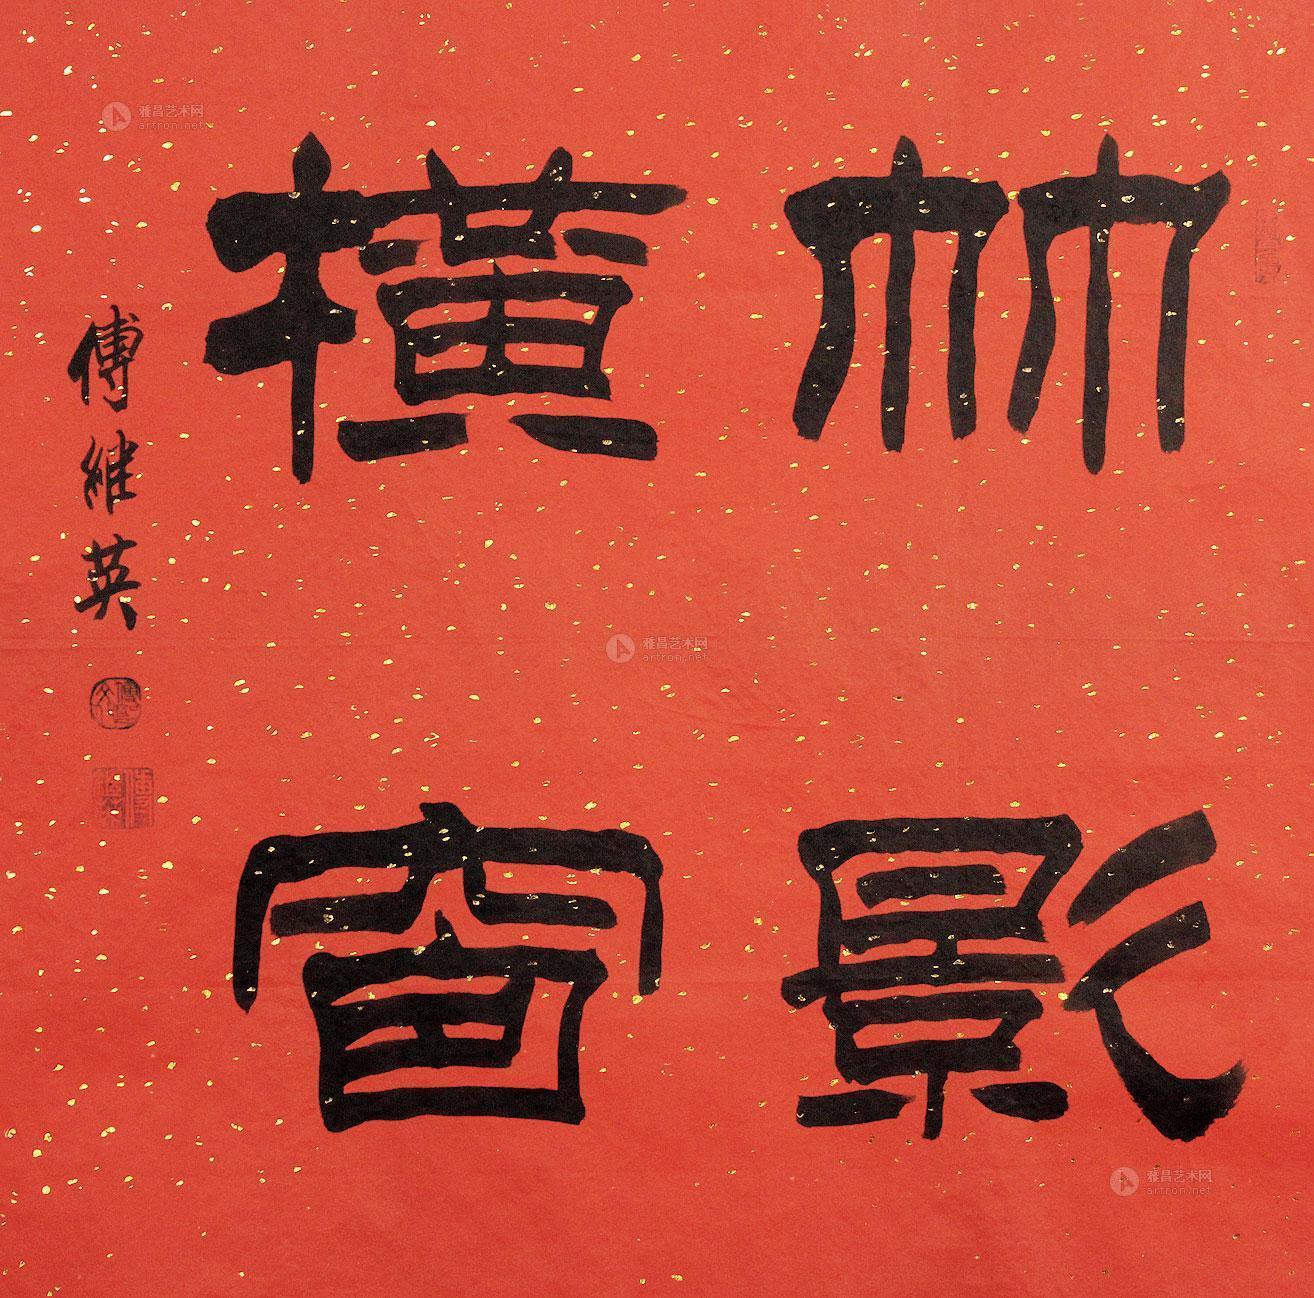 竹影
橫窗
傅維英
雅昌艺术网
artron.net
雅昌艺术网
artron.net
雅昌艺术网
artron.net